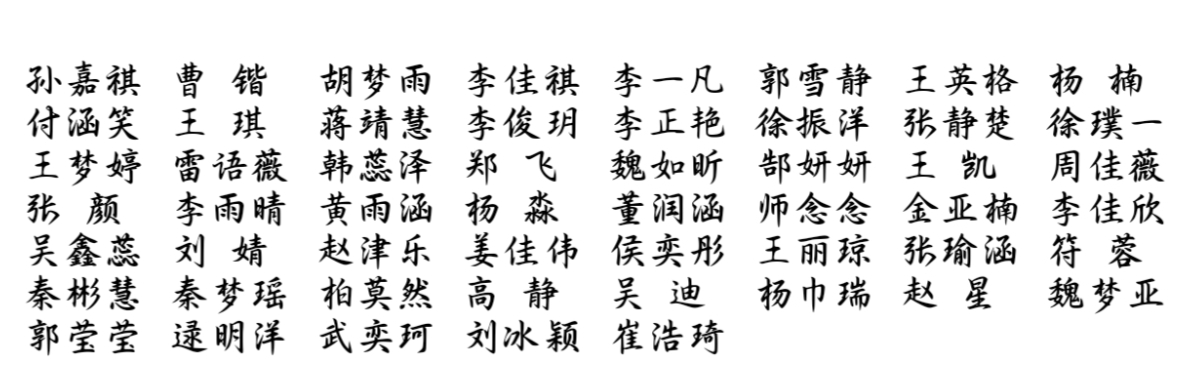 孙嘉祺 曹 锴 胡梦雨 李佳祺 李一凡 郭雪静 王英格 杨 楠
付涵笑 王 琪 蒋靖慧 李俊玥 李正艳 徐振洋 张静楚 徐璞一
王梦婷 雷语薇 韩蕊泽 郑 飞 魏如昕 郜妍妍 王 凯 周佳薇
张 颜 李雨晴 黄雨涵 杨 淼 董润涵 师念念 金亚楠 李佳欣
吴鑫蕊 刘 婧 赵津乐 姜佳伟 侯奕彤 王丽琼 张瑜涵 符 蓉
秦彬慧 秦梦瑶 柏莫然 高 静 吴 迪 杨巾瑞 赵 星 魏梦亚
郭莹莹 逯明洋 武奕珂 刘冰颖 崔浩琦